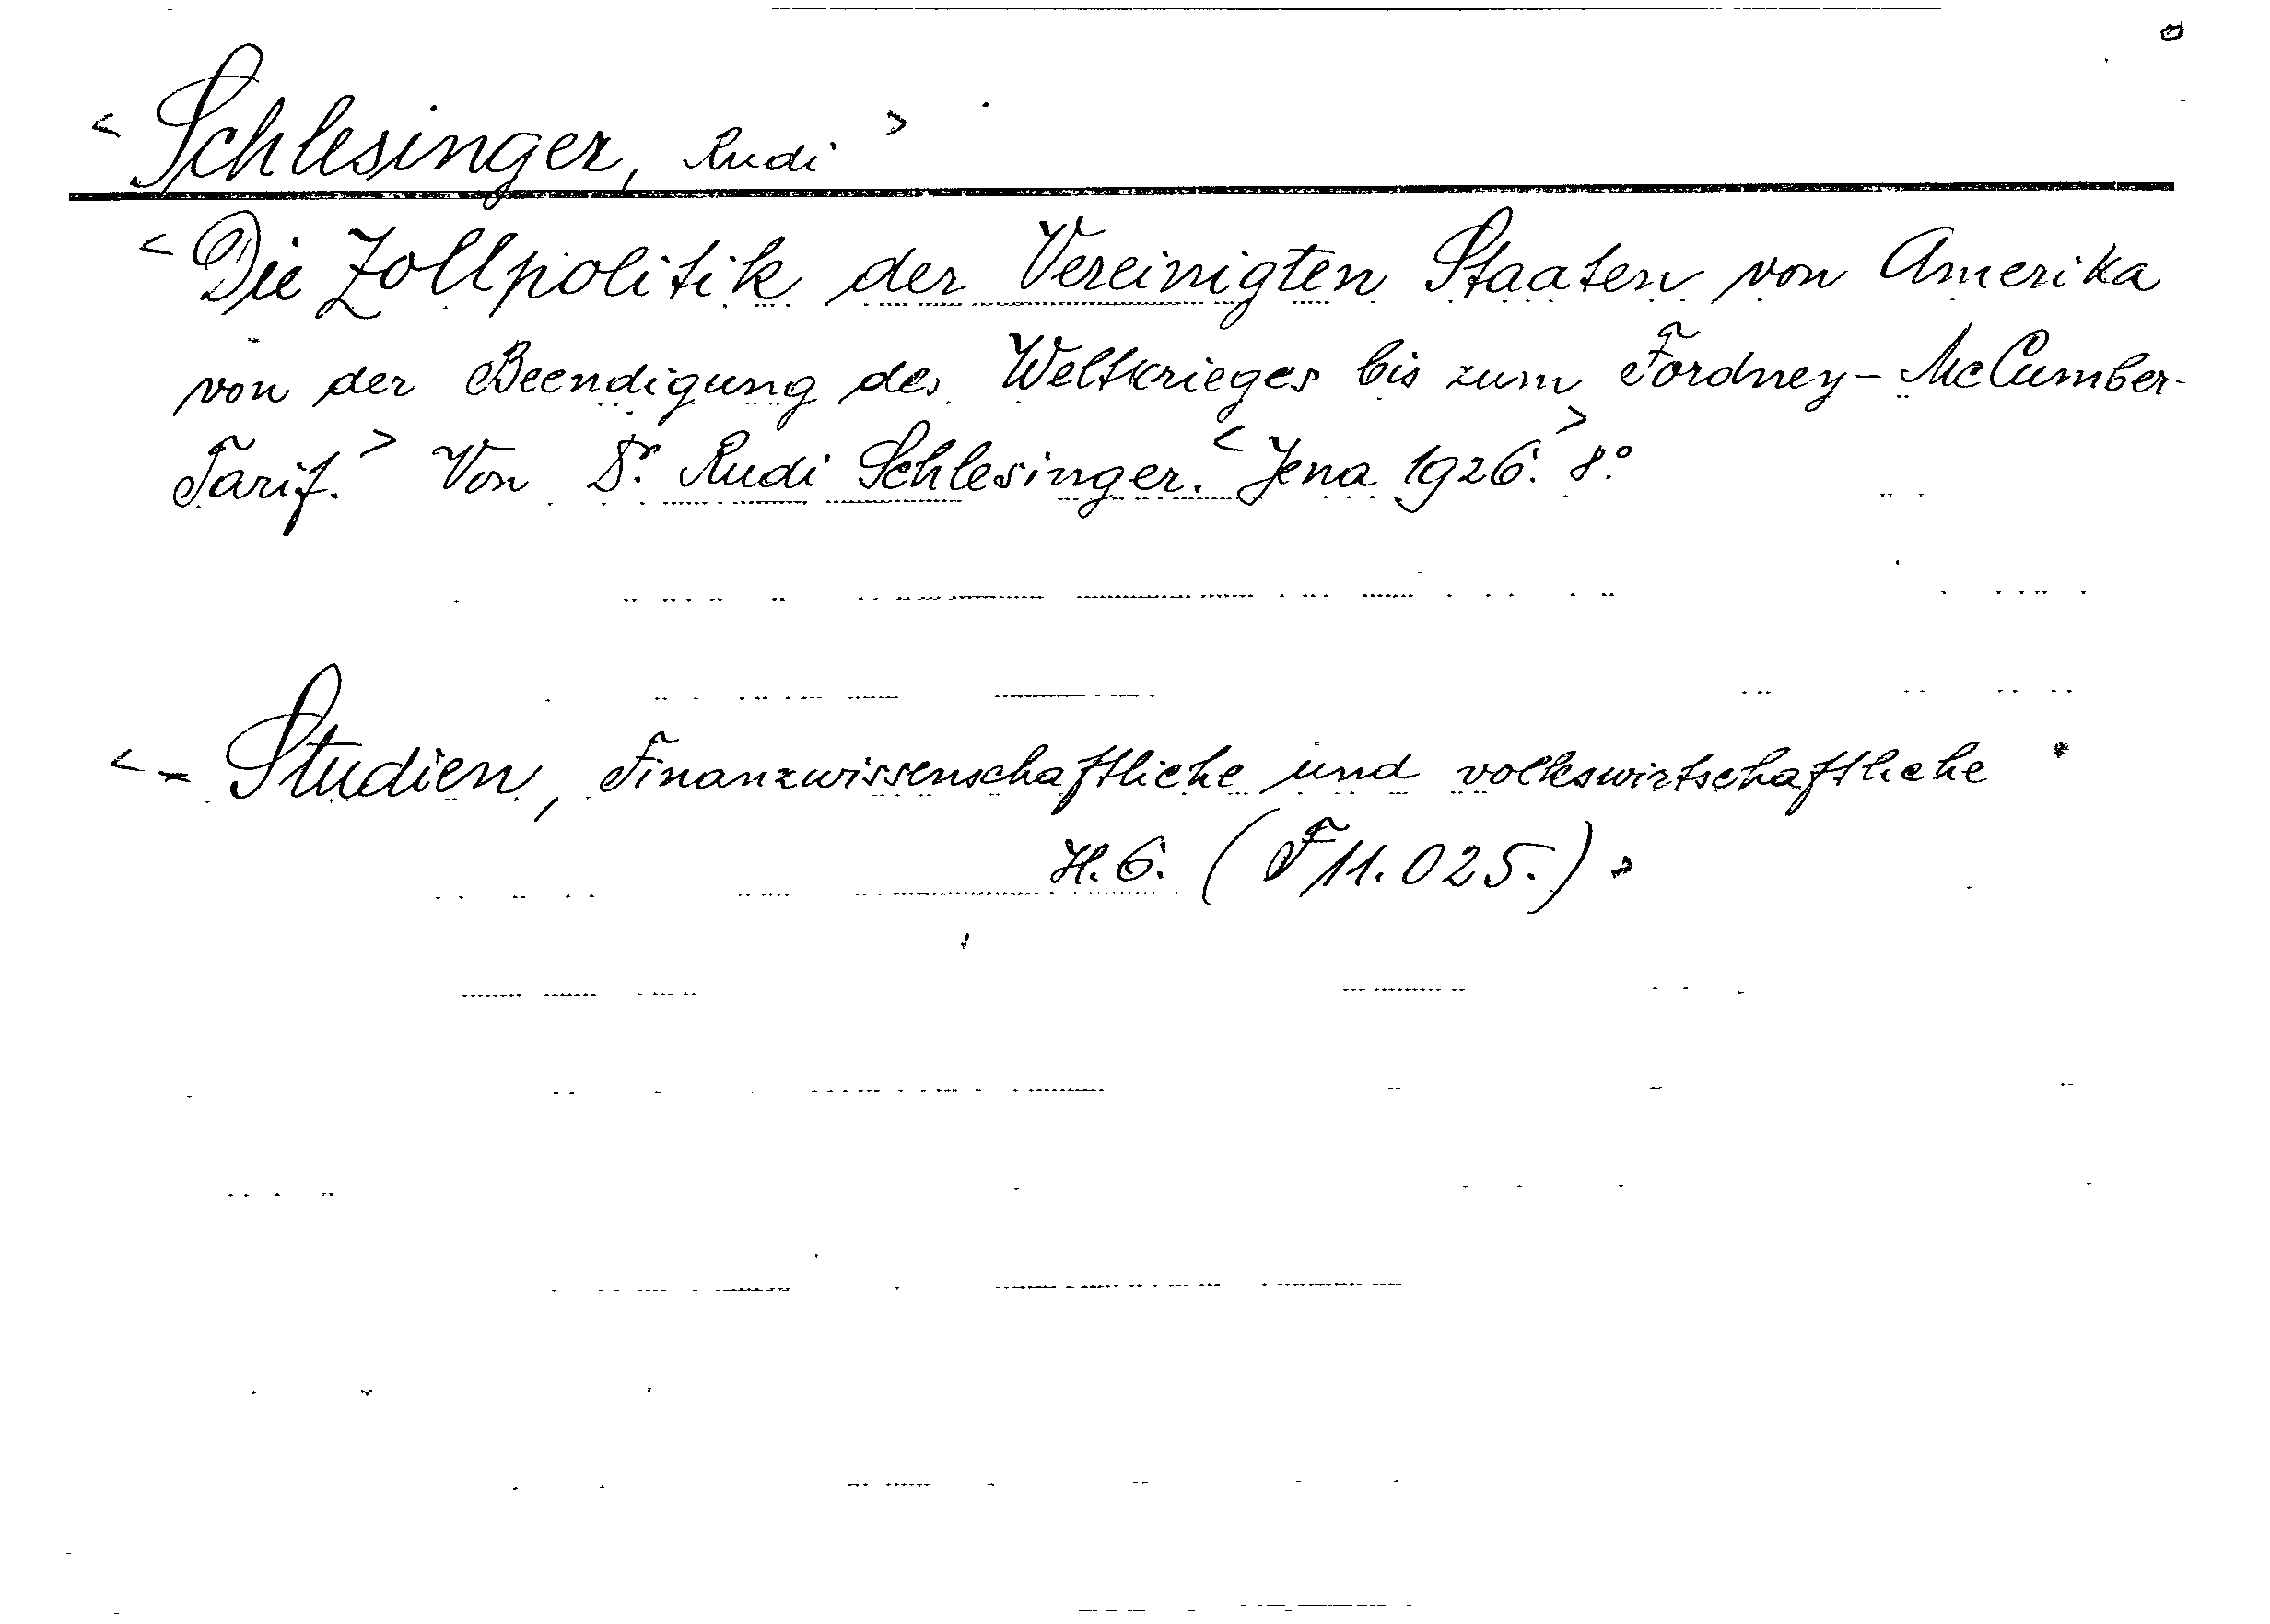 < Schlesinger, Rudi >
< Die Zollpolitik der Vereinigten Staaten von Amerika
von der Beendigung des Weltkrieges bis zum Fordney-McCumber-
Tarif. > Von Dr. Rudi Schlesinger. < Jena 1926. > 8°
< - Studien, Finanzwissenschaftliche und volkswirtschaftliche
H. 6. (F 11.025.) >